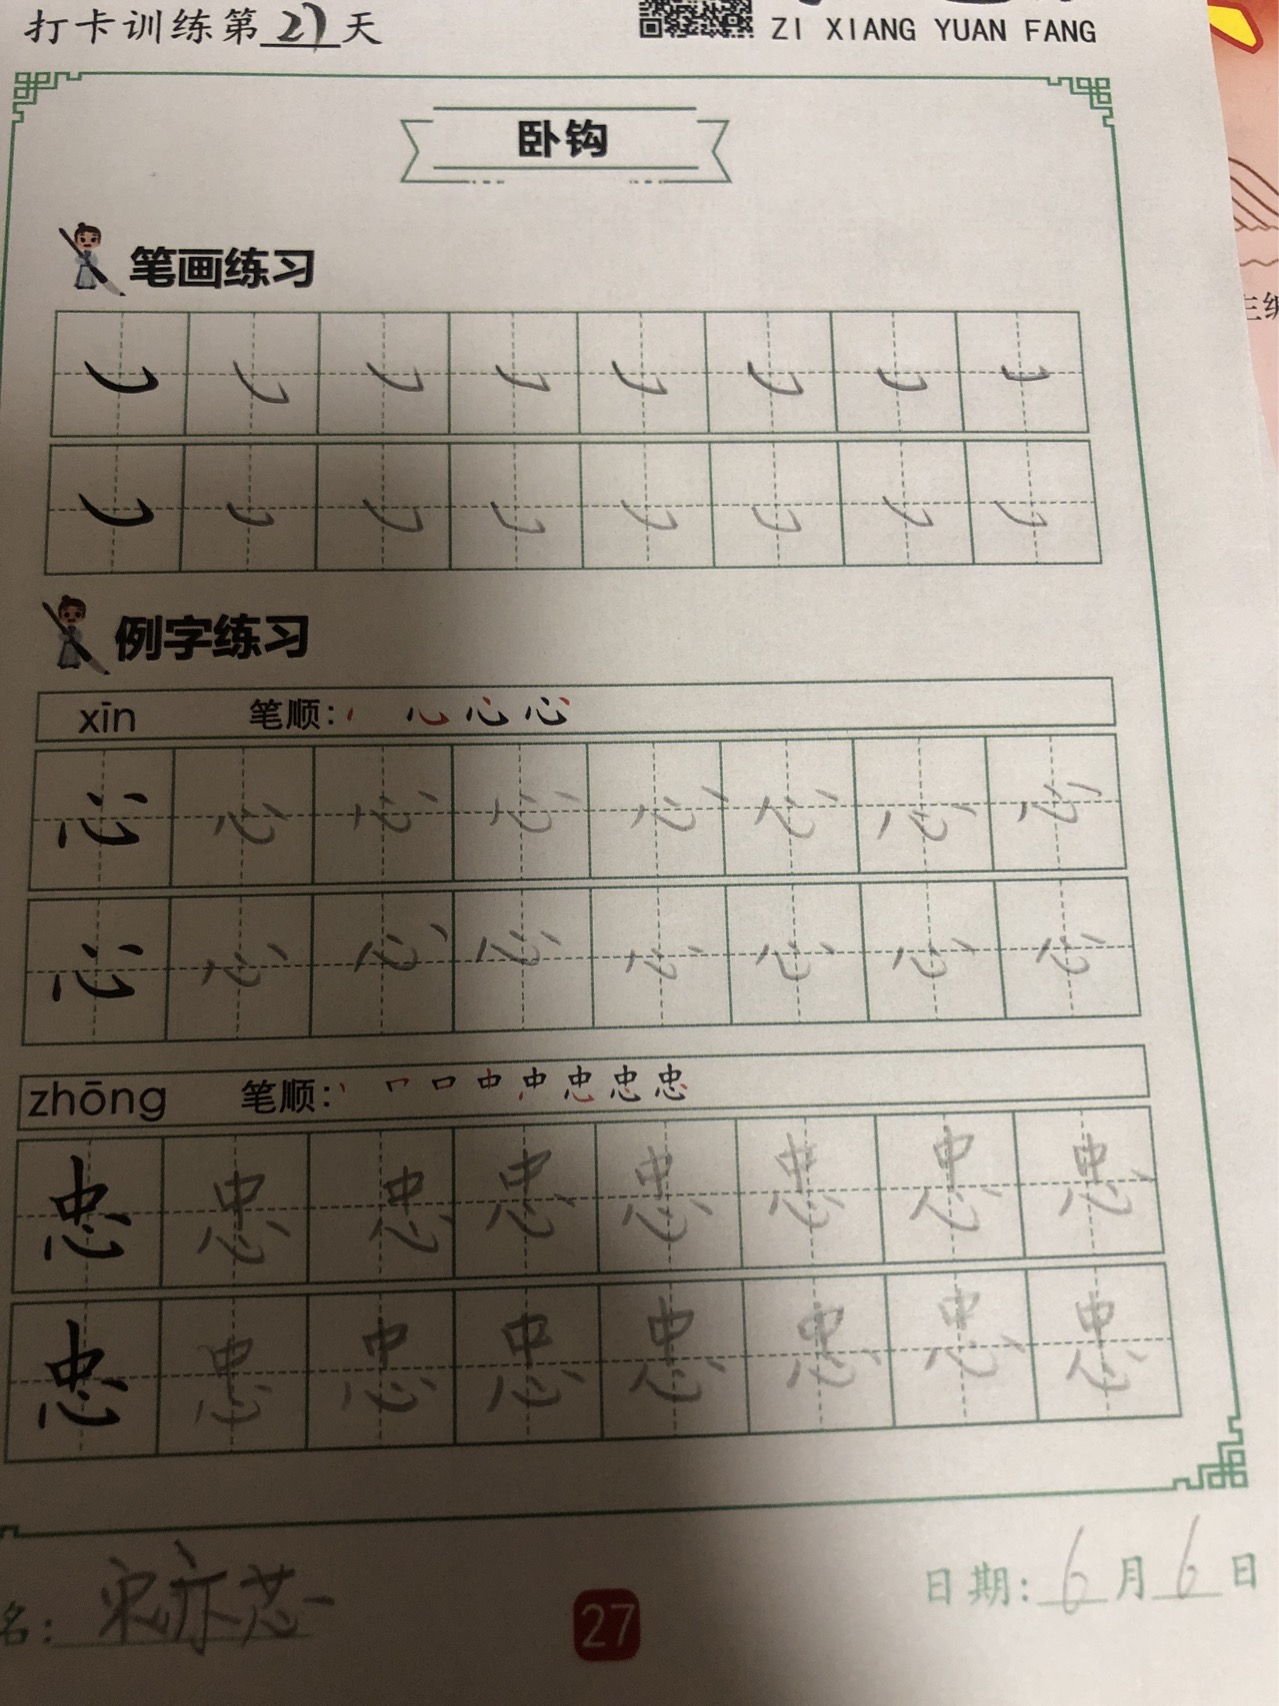 打卡训练第27天
ZI XIANG YUAN FANG
卧钩
笔画练习
例字练习
xīn 笔顺:
心 心 心 心 心 心 心 心
心 心 心 心 心 心 心 心
zhōng 笔顺:
忠 忠 忠 忠 忠 忠 忠 忠
忠 忠 忠 忠 忠 忠 忠 忠
名: 宋亦芯
27
日期: 6月6日